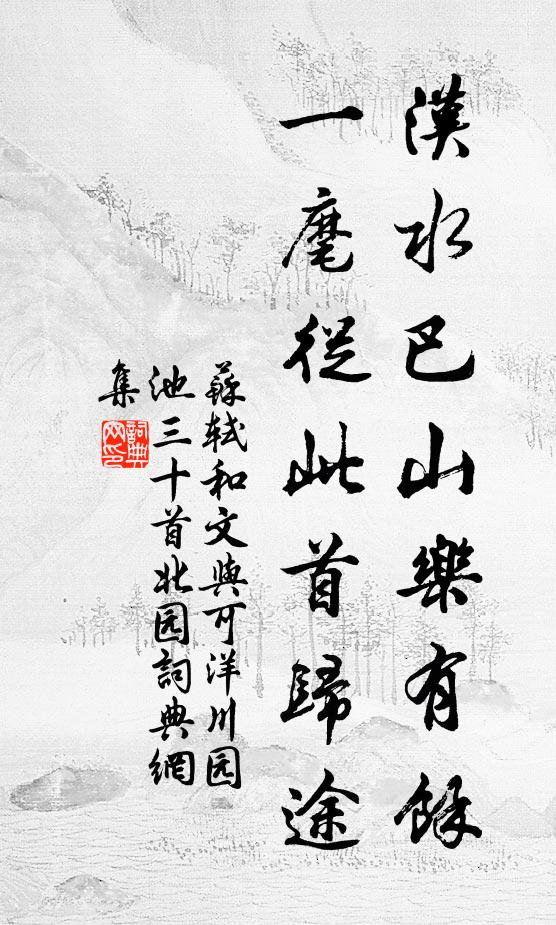 漢水巴山樂有餘
一麾從此首歸途
蘇軾和文與可洋川园
池三十首北园詞典網
集
詞典
网印